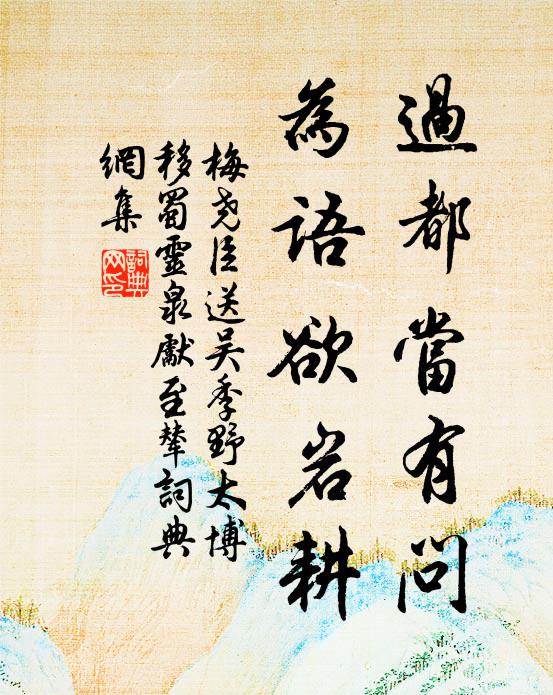 過都當有問
為語欲岩耕
梅堯臣送吴季野太博
移蜀靈泉獻至輦詞典
網集
詞典
网印